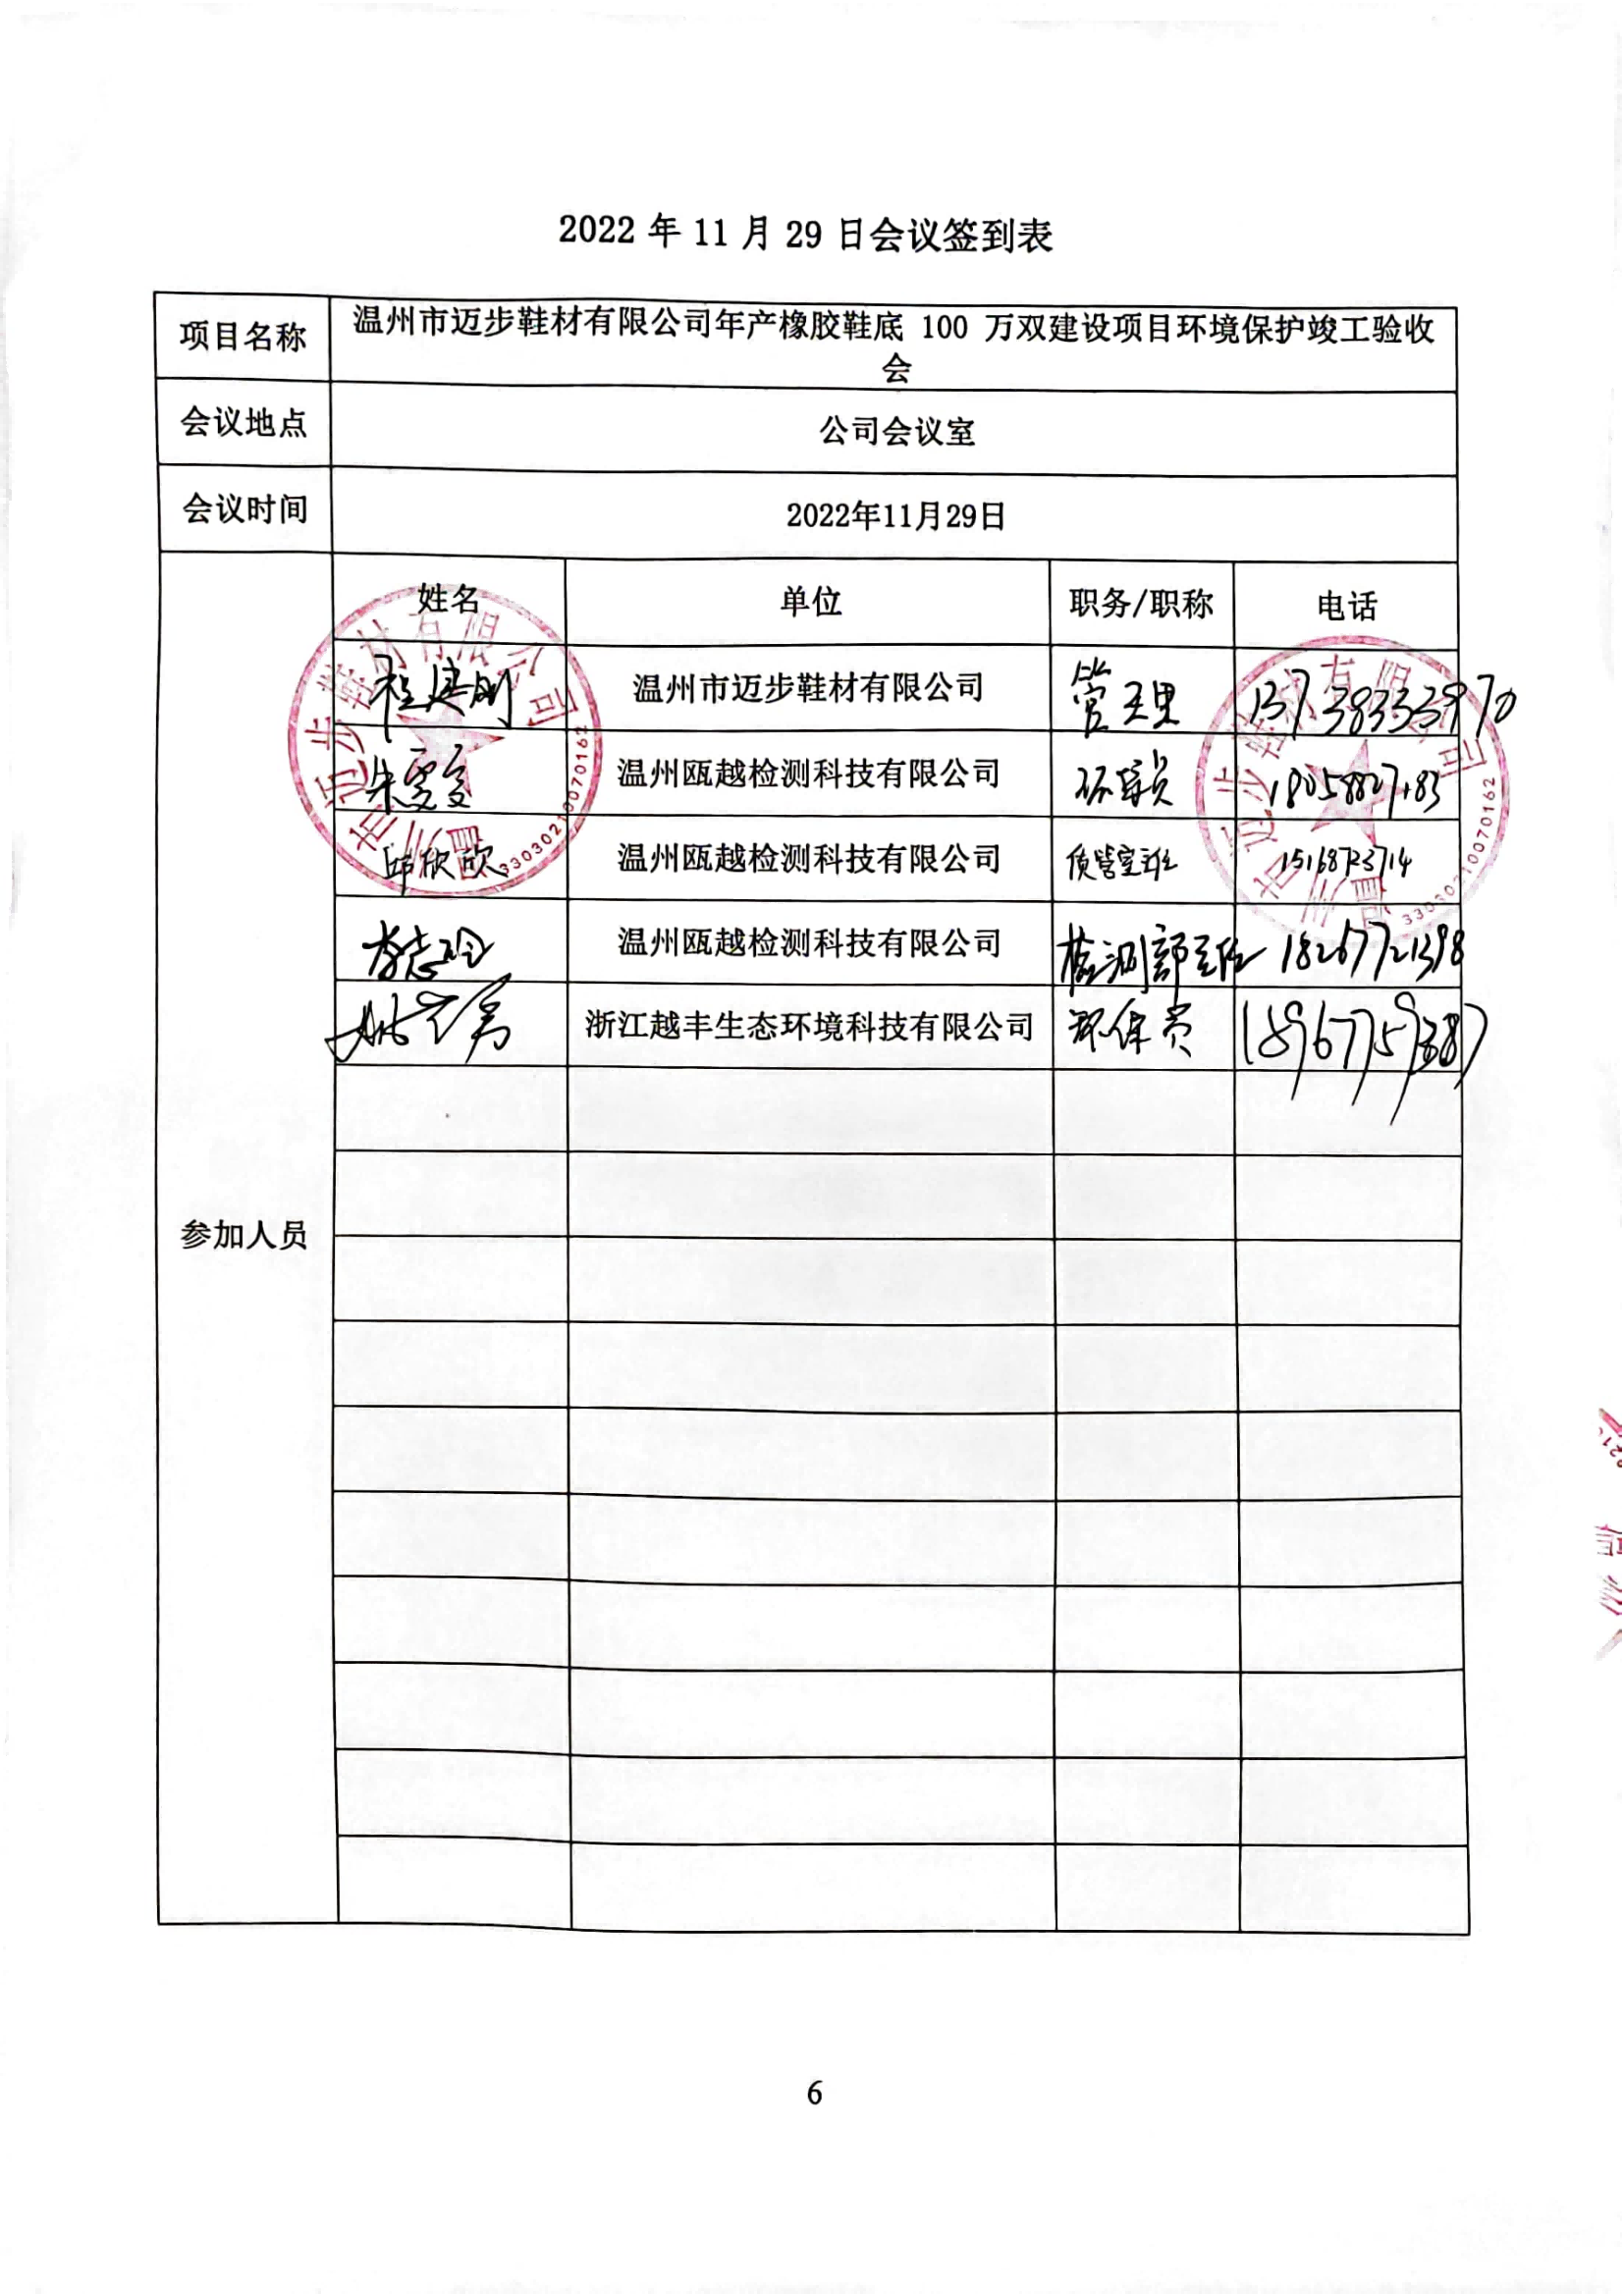 2022 年 11 月 29 日会议签到表
项目名称
温州市迈步鞋材有限公司年产橡胶鞋底 100 万双建设项目环境保护竣工验收
会
会议地点
公司会议室
会议时间
2022年11月29日
参加人员
姓名 单位 职务/职称 电话
温州市迈步鞋材有限公司 管理 13738333970
朱雯雯 温州瓯越检测科技有限公司
邱欣欣 温州瓯越检测科技有限公司 质管室主任 15168723714
温州瓯越检测科技有限公司 检测部主任 18267721398
浙江越丰生态环境科技有限公司 环保员 18967759387
温州市迈步鞋材有限公司
33030210070162
温州市迈步鞋材有限公司
33030210070162
6